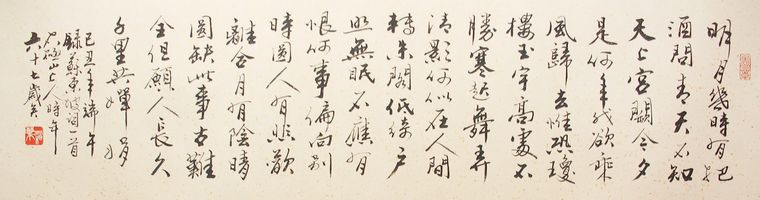 明月幾時有把
酒問青天不知
天上宮闕今夕
是何年我欲乘
風歸去惟恐瓊
樓玉宇高處不
勝寒起舞弄
清影何似在人間
轉朱閣低綺戶
照無眠不應有
恨何事偏向別
時圓人有悲歡
離合月有陰晴
圓缺此事古難
全但願人長久
千里共嬋娟
己丑年端午
錄蘇東坡詞一首
山上人時年
六十七歲矣